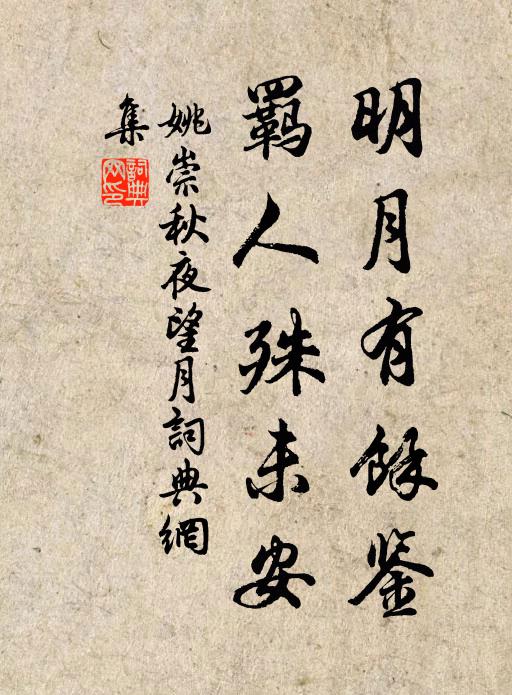 明月有餘鉴
羈人殊未安
姚崇秋夜望月詞典網
集
詞典网印